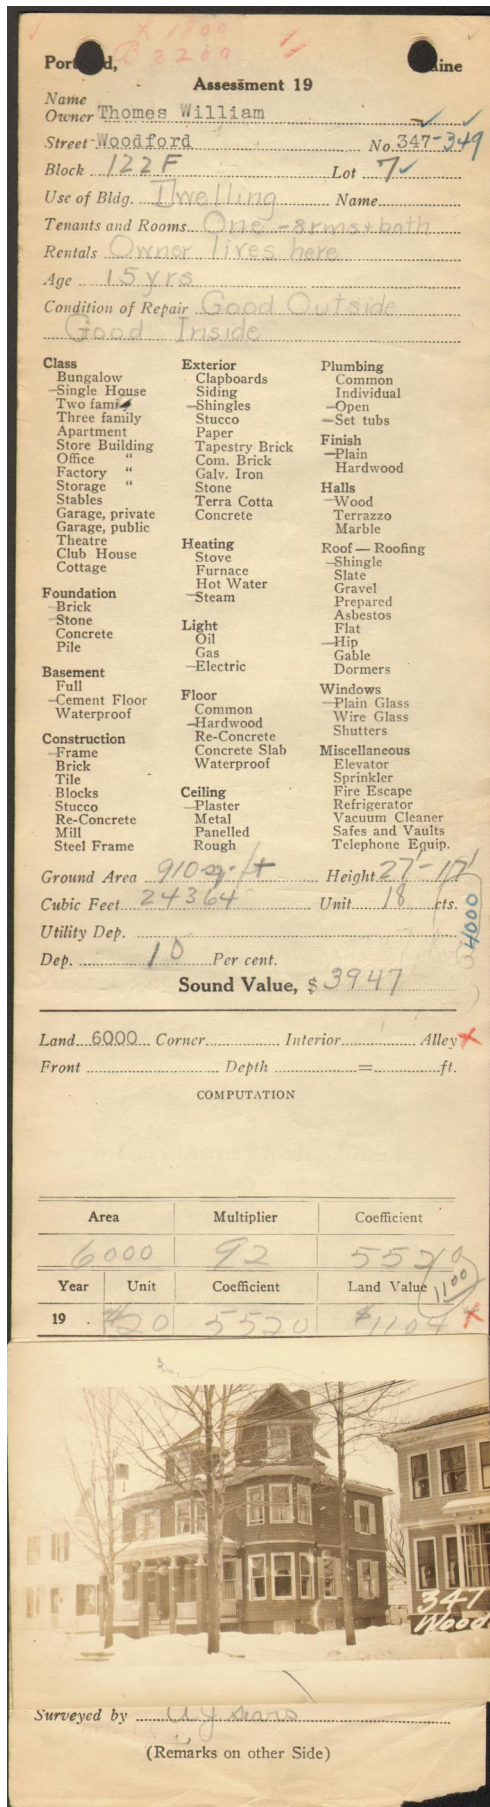 L 1800
B 3200
Port d, aine
Assessment 19
Name
Owner Thomes William
Street Woodford No. 347-349
Block 122F Lot 7
Use of Bldg. Dwelling Name
Tenants and Rooms One - 8 rms + bath
Rentals Owner lives here
Age 15 yrs
Condition of Repair Good Outside
Good Inside
Class
Bungalow
Single House
Two family
Three family
Apartment
Store Building
Office "
Factory "
Storage "
Stables
Garage, private
Garage, public
Theatre
Club House
Cottage
Foundation
Brick
Stone
Concrete
Pile
Basement
Full
Cement Floor
Waterproof
Construction
Frame
Brick
Tile
Blocks
Stucco
Re-Concrete
Mill
Steel Frame
Exterior
Clapboards
Siding
Shingles
Stucco
Paper
Tapestry Brick
Com. Brick
Galv. Iron
Stone
Terra Cotta
Concrete
Heating
Stove
Furnace
Hot Water
Steam
Light
Oil
Gas
Electric
Floor
Common
Hardwood
Re-Concrete
Concrete Slab
Waterproof
Ceiling
Plaster
Metal
Panelled
Rough
Plumbing
Common
Individual
Open
Set tubs
Finish
Plain
Hardwood
Halls
Wood
Terrazzo
Marble
Roof — Roofing
Shingle
Slate
Gravel
Prepared
Asbestos
Flat
Hip
Gable
Dormers
Windows
Plain Glass
Wire Glass
Shutters
Miscellaneous
Elevator
Sprinkler
Fire Escape
Refrigerator
Vacuum Cleaner
Safes and Vaults
Telephone Equip.
Ground Area 910 sq. ft Height 27'-17'
Cubic Feet 24364 Unit 18 cts.
4000
Utility Dep.
Dep. 10 Per cent.
Sound Value, $ 3947
Land 6000 Corner Interior Alley
Front Depth = ft.
COMPUTATION
Area Multiplier Coefficient
6000 92 5520
Year Unit Coefficient Land Value
1100
19 . $20 5520 $1104
347
Wood
Surveyed by A J Sears
(Remarks on other Side)